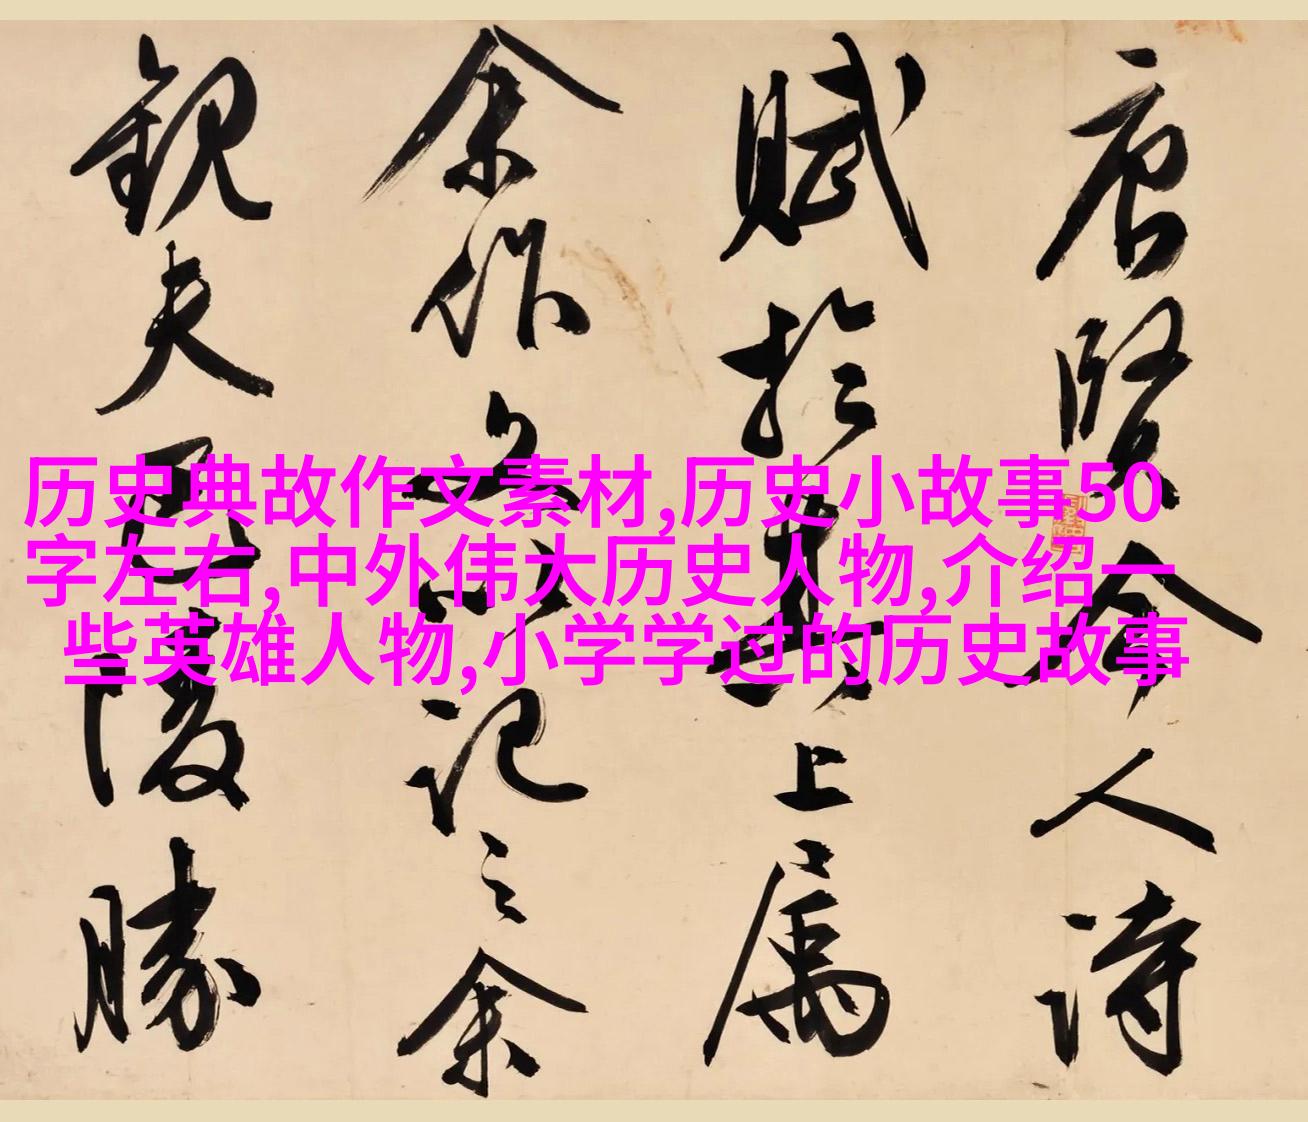 历史典故作文素材,历史小故事50
字左右,中外伟大历史人物,介绍一
些英雄人物,小学学过的历史故事
唐賢今人詩
賦於其上属
余作文以記之余
觀夫巴陵勝